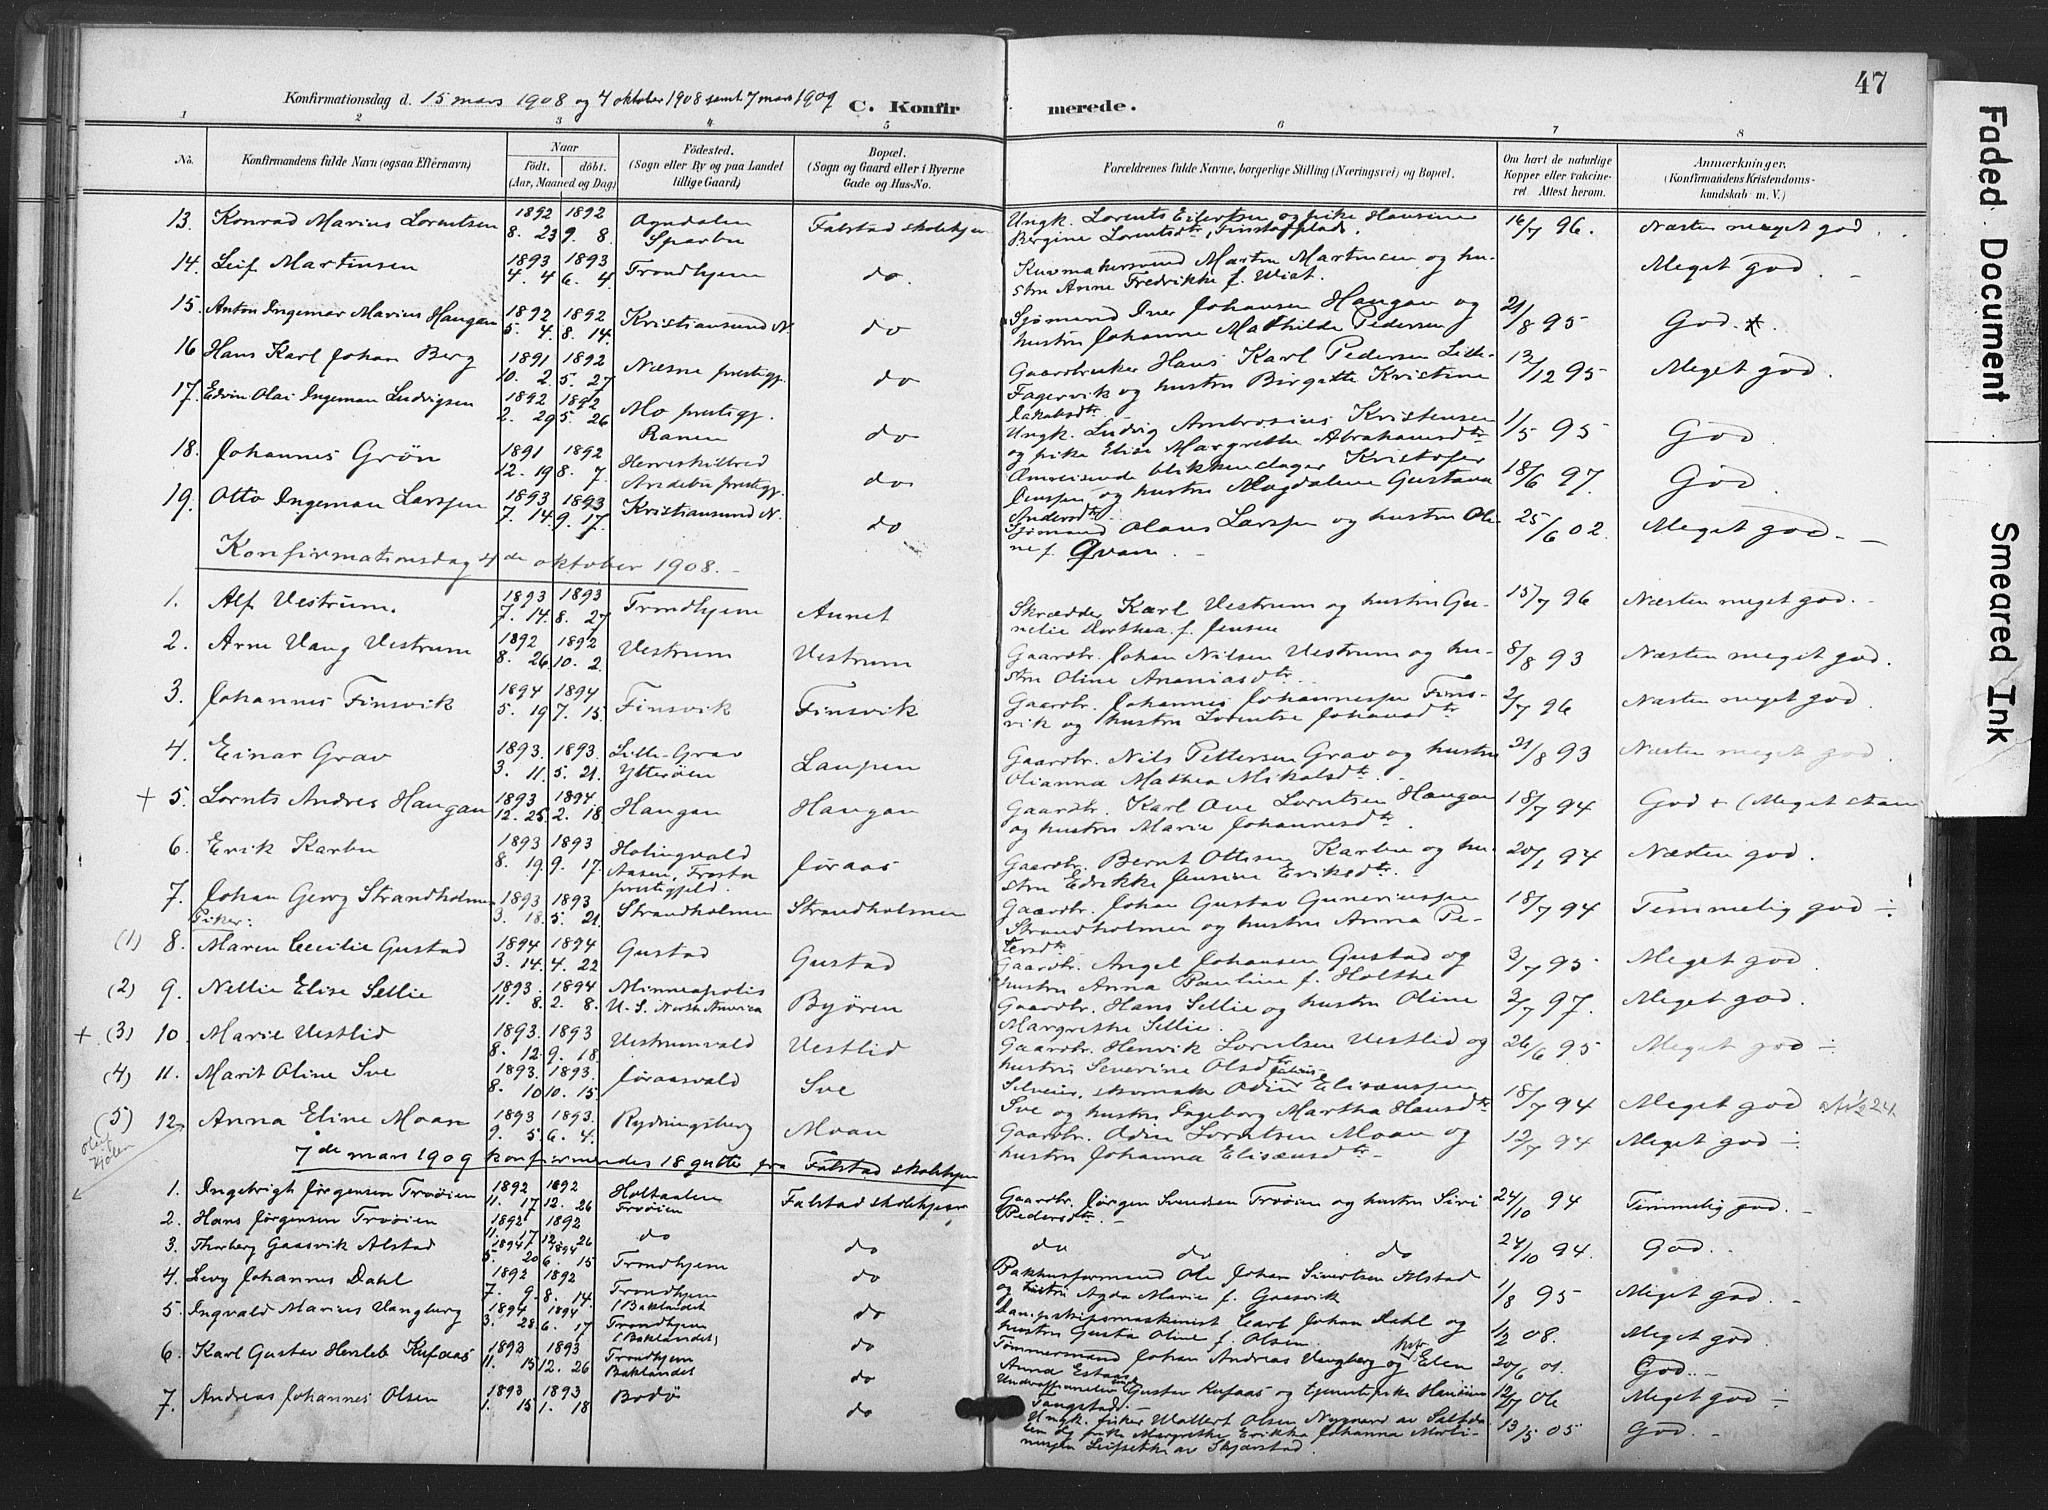 47
Konfirmationsdag d. 15 mars 1908 og 4 oktober 1908 samt 7 mars 1909 C. Konfir merede.
1 2 3 4 5 6 7 8
No. Konfirmandens fulde Navn (ogsaa Efternavn) Naar født. døbt. (Aar, Maaned og Dag) Fødested. (Sogn eller By og paa Landet tillige Gaard) Bopæl. (Sogn og Gaard eller i Byerne Gade og Hus-No. Forældrenes fulde Navne, borgerlige Stilling (Næringsvei) og Bopæl. Om havt de naturlige Kopper eller vakcineret Attest herom. Anmærkninger. (Konfirmandens Kristendomskundskab m. V.)
13. Konrad Marius Lorentsen 1892 8. 23 1892 9. 8. Ogndalen Sparbu Falstad skolehjem Ungk. Lorents Eilertsen og pike Hansine Bergine Lorentsdtr, 16/7 96. Næsten meget god.
14. Leif Martinsen 1893 4. 4 1893 6. 4 Trondhjem do. Martin Martinsen og hustru Anne Fredrikke f. Wiat. Meget god. -
15. Anton Ingemar Marius Haugan 1892 5. 4. 1892 8. 14. Kristiansund N. do Sjømand Iver Johansen Haugan og hustru Johanne Mathilde Pedersen 21/8 95 God.
16 Hans Karl Johan Berg 1891 10. 2. 1892 5. 27 Næsne prestegj. do Gaardbruker Hans Karl Pedersen Lille-Fagervik og hustru Birgitte Kristine Jakobsdtr. 13/12 95 Meget god.
17. Edvin Olai Ingeman Ludvigsen 1892 2. 29 1892 5. 26 Mo prestegj. Ranen do Ungk. Ludvig Ambrosius Kristensen og pike Elise Margrethe Abrahamsdtr 1/5 95 God.
18. Johannes Grön 1891 12. 19 1892 8. 7. prestegj. do. Omreisende blikkenslager Kristofer Jenssen og hustru Magdalene Gustava Andersdtr. 18/6 97. God.
19. Otto Ingeman Larssen 1893 7. 14. 1893 9. 17. Kristiansund N. do Sjømand Olaus Larssen og hustru Oline f. Qvam. - 25/6 02. Meget god. -
Konfirmationsdag 4de oktober 1908. -
1. Alf Vestrum. 1893 7. 14. 1893 8. 27 Trondhjem Aunet Skrædder Karl Vestrum og hustru Gunelie Dorthea f. Jensen 15/7 96 Næsten meget god. -
2. Arne Vang Vestrum 1892 8. 26 1892 10. 2 Vestrum Vestrum Gaardbr. Johan Nilsen Vestrum og hustru Oline Ananiasdtr. 8/8 93 Næsten meget god.
3. Johannes Finsvik 1894 5. 19 1894 7. 15. Finsvik Finsvik Gaardbr. Johannes Johannessen Finsvik og hustru Lorentse Johansdtr 2/7 96 Næsten meget god.
4. Einar Grav 1893. 3. 11. 1893. 5. 21. Lille-Grav Ytterøen Laupen Gaardbr. Nils Pettersen Grav og hustru Olianna Mathea Mikalsdtr. 21/8 93 Næsten meget god
+ 5. Lornts Andres Haugan 1893 12. 25 1894 2. 18 Haugan Haugan Gaardbr. Karl Ove Lorntsen Haugan og hustru Marie Johannesdtr. 18/7 94 God + (Meget
6. Erik Karbu 1893 8. 19. 1893 9. 17. Holingvald Aasen, Frosta prestegjeld. Jøraas Gaardbr. Bernt Ottesen Karbu og hustru Edrikke Jensine Eriksdtr. 20/1 94 Næsten god.
7. Johan Georg Strandholmen 1893 3. 18. 1893 5. 21 Strandholmen Strandholmen Gaardbr. Johan Gustav Guneriussen Strandholmen og hustru Anna Petersdtr 18/7 94 Temmelig god ÷
Piker:
(1) 8. Maren Cecilie Gustad 1894 3. 14. 1894 4. 22 Gustad Gustad Gaardbr. Angel Johansen Gustad og hustru Anna Pauline f. Holthe 3/7 95 Meget god.
(2) 9. Nellie Elise Sellie 1893. 11. 8. 1894 2. 8. Minneapolis U. S. North America Byøren Gaardbr. Hans Sellie og hustru Oline Margrethe Sellie. 3/7 97. Meget god.
+ (3) 10 Marie Vestlid 1893. 8. 12. 1893 9. 18. Vestrumvald Vestlid Gaardbr. Henrik Lorntsen Vestlid og hustru Severine Olsdtr 26/6 95 Meget god ÷
(4) 11. Marit Oline Sve 1893. 8. 10 1893. 10. 15. Jøraasvald Sve Selveier, skomaker Odin Elisæussen Sve og hustru Ingeborg Martha Hansdtr 18/7 94 Meget god
(5) 12. Anna Eline Moan 1893 9. 5. 1893. 6. 4. Rydningsberg Moan Gaardbr. Odin Lorntsen Moan og hustru Johanna Elisæusdtr - 12/7 94 Meget god ÷
7de mars 1909 konfirmerdes 18 gutter fra Falstad skolehjem
1. Ingebrigt Jørgensen Trøøien 1892 11. 17 1892 12. 26 Holtaalen Trøøien Falstad skolehjem Gaardbr. Jørgen Svendsen Trøøien og hustru Siri Pedersdtr. - 24/10 94 Temmelig god. -
2. Hans Jørgensen Trøøien 1892 11. 17 1892 12. 26 do do do do do 24/10 94. God. -
3. Thorberg Gaasvik Alstad 1894 5. 20 1894 6. 15 Trondhjem do Pakhusformand Ole Johan Sivertsen Alstad og hustru Agda Marie f. Gaasvik 1/8 95 Meget god. -
4. Levy Johannes Dahl 1892 7. 9 1892 8. 14. Trondhjem (Baklandet do Dampskipsmaskinist Carl Johan Dahl og hustru Gusta Oline f. Olsen. 1/2 08. Meget god.
5. Ingvald Marius Vangberg 1894 3. 28. 1894 6. 17 Trondhjem (Baklandet) do Tømmermand Johan Andreas Vangberg og hstr. Elen Anna 20/6 01. God. -
6. Karl Gustav Hersleb Kufaas 1893 11. 15 1893 12. 26 Trondhjem Baklandet do Underofficerselev Gustav Kufaas og tjenestepike 12/7 06 Meget god ÷
7. Andreas Johannes Olsen 1893 1. 15 1893 1. 18 Bodö do Ungk. fisker Waltert Olsen av Saltdalen og pike Margrethe Erikka Johanna av Skjærstad. 13/5 05 God. -
Faded Document
Smeared Ink